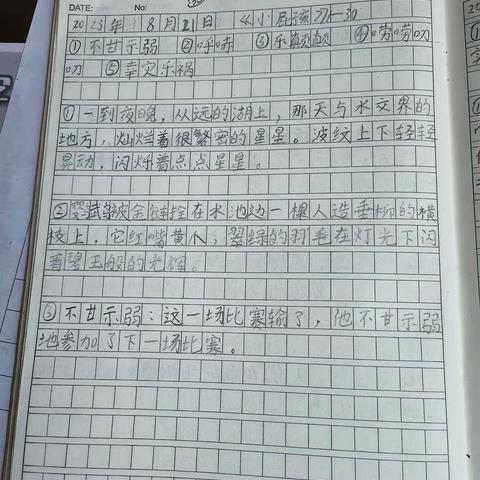 DATE: No:
2023年 8月21日 《小屁孩》1-30
①不甘示弱 ②呼哧 ③乐颠颠 ④唠唠叨
叨 ⑤幸灾乐祸
①一到夜晚，从远的湖上，那天与水交界的
地方，灿烂着很繁密的星星。波纹上下轻轻
晃动，闪烁着点点星星。
②鹦鹉被金链拴在水池边一棵人造垂柳的横
枝上，它红嘴黄爪，翠绿的羽毛在灯光下闪
着碧玉般的光辉。
③不甘示弱：这一场比赛输了，他不甘示弱
地参加了下一场比赛。